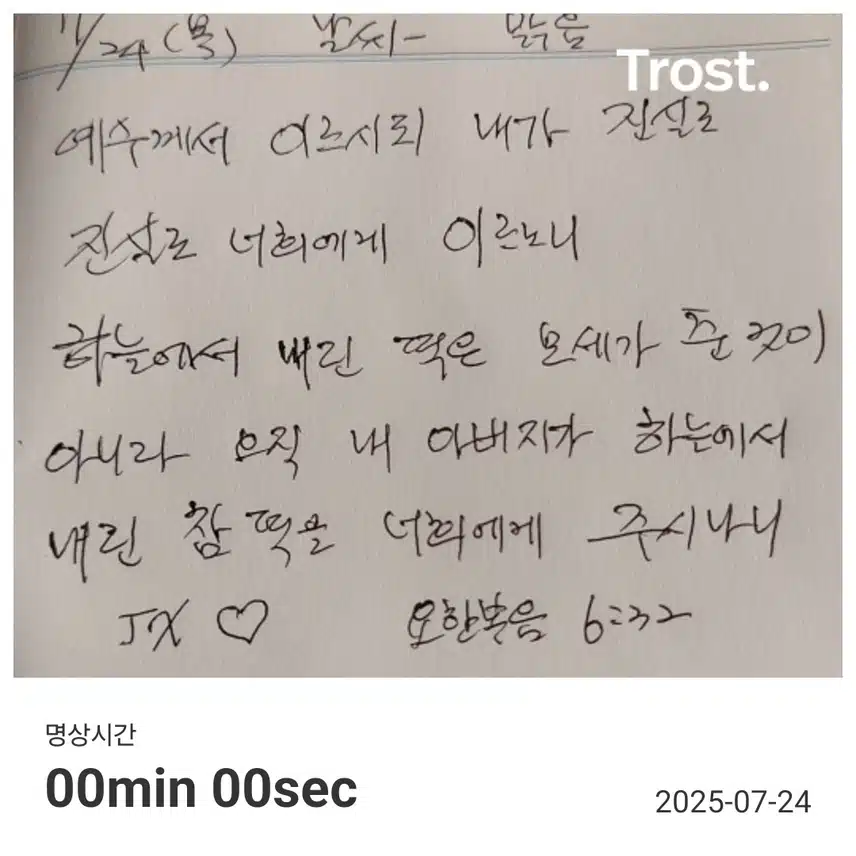 /24 (목) 날씨- 맑음
Trost.
예수께서 이르시되 내가 진실로
진실로 너희에게 이르노니
하늘에서 내린 떡은 모세가 준 것이
아니라 오직 내 아버지가 하늘에서
내린 참 떡을 너희에게 주시나니
JX ♡ 요한복음 6:32
명상시간
00min 00sec
2025-07-24